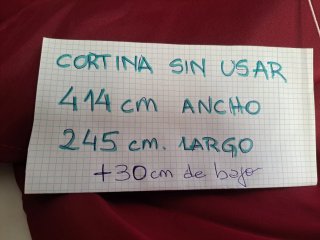 CORTINA SIN USAR
414 cm ANCHO
245 cm. LARGO
+30cm de bajo